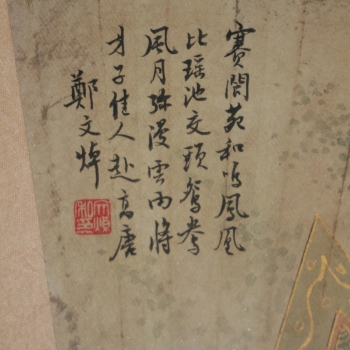 赛閬苑和鸣鳳凰
比瑶池交頸鸳鸯
風月弥漫雲雨将
才子佳人赴高唐
鄭文焯